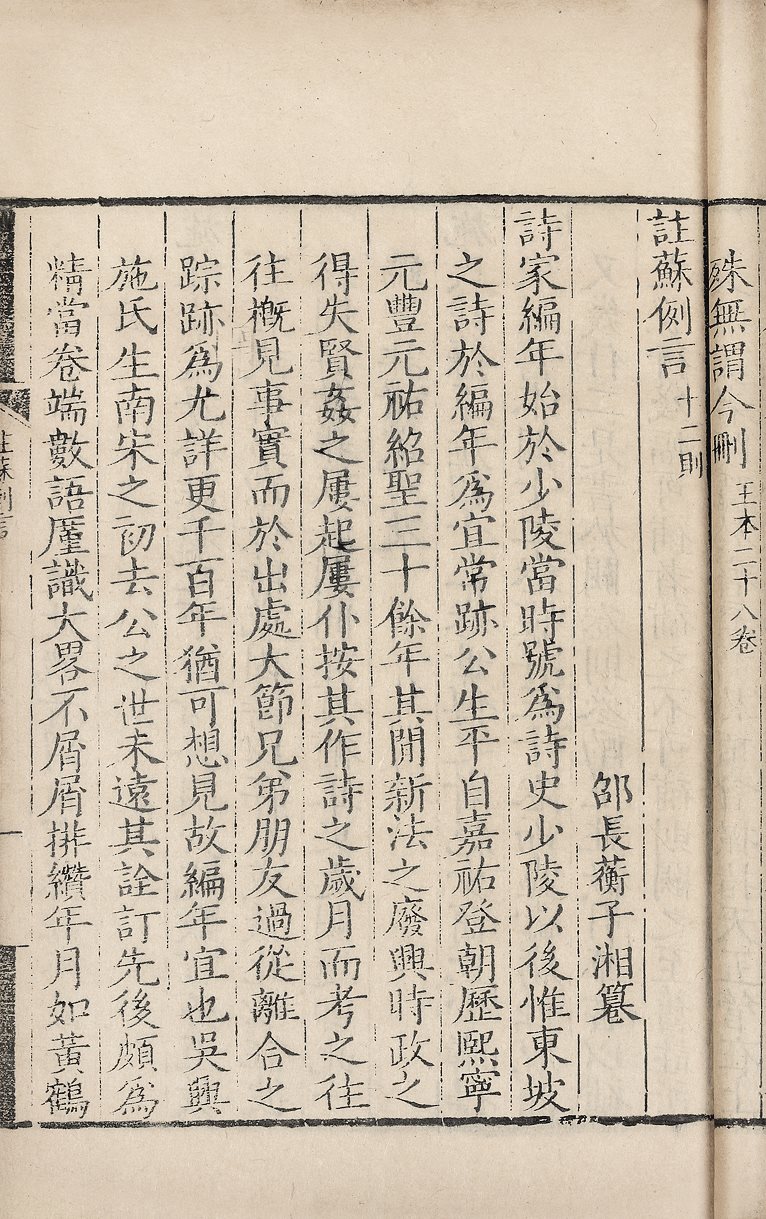 殊無謂今刪王本二十八卷
註蘇例言十二則
邵長蘅子湘纂
詩家編年始於少陵當時號爲詩史少陵以後惟東坡
之詩於編年爲宜常跡公生平自嘉祐登朝歷熙寧
元豐元祐紹聖三十餘年其閒新法之廢興時政之
得失賢姦之屢起屢仆按其作詩之歲月而考之往
往概見事實而於出處大節兄弟朋友過從離合之
踪跡爲尤詳更千百年猶可想見故編年宜也吳興
施氏生南宋之初去公之世未遠其詮訂先後頗爲
精當卷端數語厪識大畧不屑屑排纘年月如黃鶴
註蘇例言